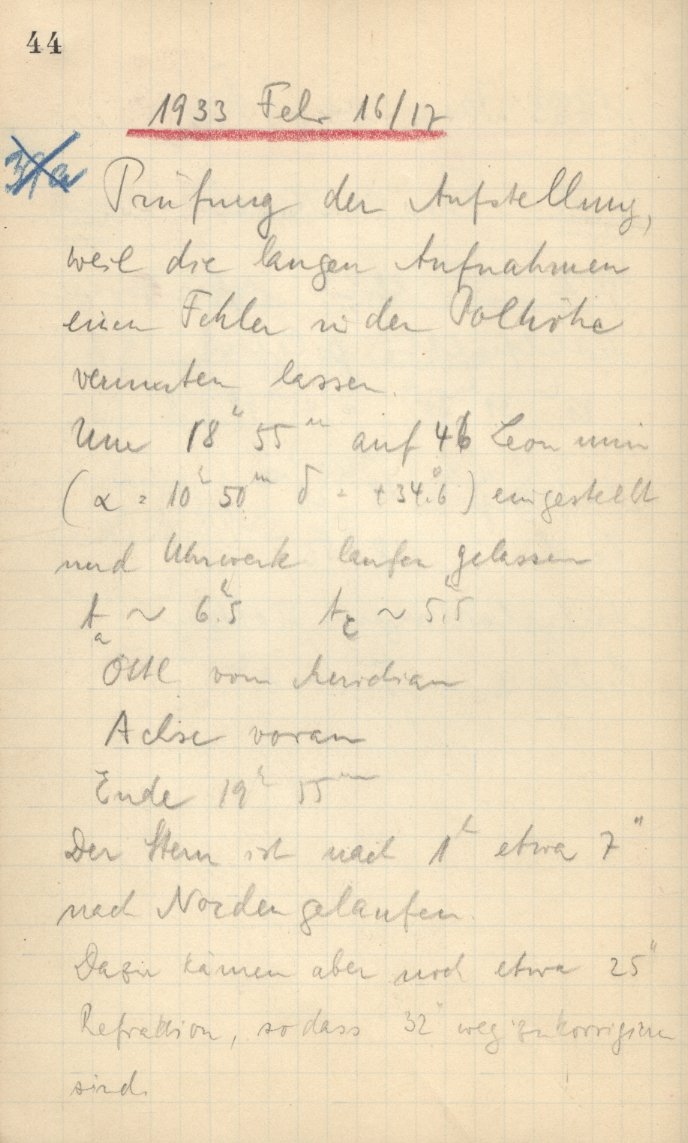 44
1933 Febr 16/17
Prüfung der Aufstellung,
weil die langen Aufnahmen
einen Fehler in der Polhöhe
vermuten lassen.
Um 18ʰ 55ᵐ auf 46 Leon min
(α = 10ʰ 50ᵐ δ = +34.°6) eingestellt
und Uhrwerk laufen gelassen
tₐ ~ 6.ʰ5 t ~ 5.ʰ5
Östl vom Meridian
Achse voran
Ende 19ʰ 55ᵐ
Der Stern ist nach 1ʰ etwa 7"
nach Norden gelaufen.
Dazu kämen aber noch etwa 25"
Refraktion, sodass 32" wegzukorrigieren
sind.